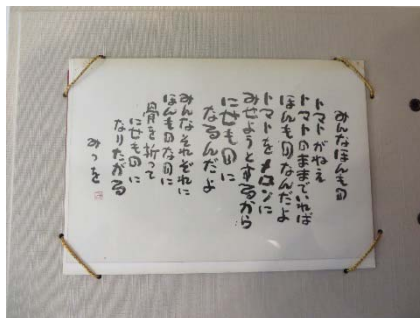 みんなほんもの
トマトがねえ
トマトのままでいれば
ほんものなんだよ
トマトをメロンに
みせようとするから
にせものに
なるんだよ
みんなそれぞれに
ほんものなのに
骨を折って
にせものに
なりたがる
みつを